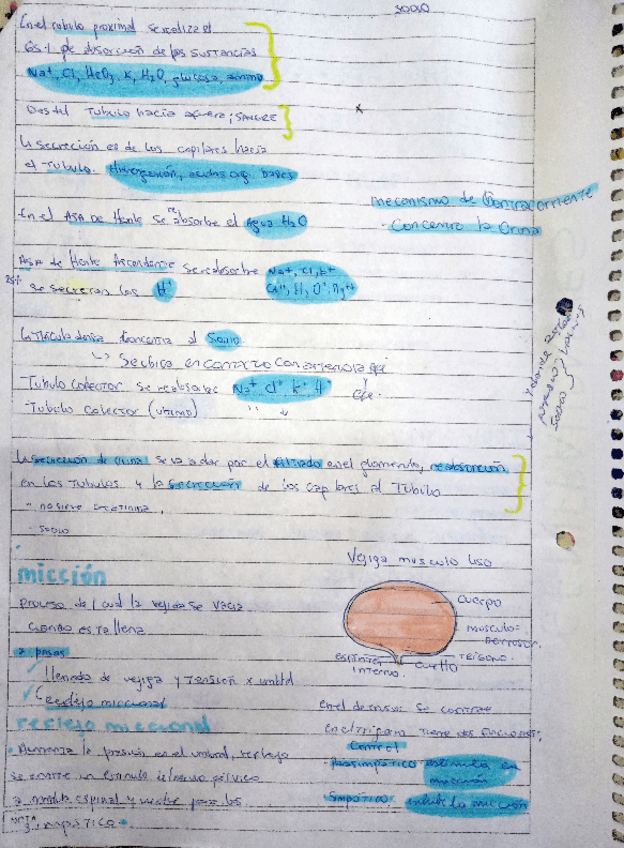 SODIO
En el tubulo proximal se realiza el
65% de absorción de las sustancias
Na+, Cl, HCO3, K, H2O, glucosa, amino
Des del Tubulo hacia afuera; SANGRE
La secreción es de los capilares hacia
el Tubulo. Hidrogenión, acidos org. bases
mecanismo de Contracorriente
- Concentra la Orina
En el ASA De Henle se reabsorbe el Agua H2O
ASA de Henle Ascendente se reabsorbe Na+, Cl, K+
25% se secretan los H+
Ca++, H2O, Mg++
La Mácula densa Concentra al Sodio
↳ Se ubica en contacto con arteriola
Tubulo colector se reabsorbe Na+ Cl+ K+
Tubulo Colector (ultimo) "
La secreción de orina se va a dar por el filtrado en el glomerulo, reabsorción
en los Tubulos y la secreción de los capilares al Tubulo
- no sirve creatinina,
- sodio
micción
Proceso del cual la vejiga se vacia
cuando esta llena
2 pasos
llenado de vejiga y Tensión x umbral
reflejo miccional
reflejo miccional
Aumenta la presión en el umbral, reflejo
se emite un estimulo
a medula espinal y vuelve para los
Vejiga musculo liso
Cuerpo
musculo
Detrusor
Trigono.
Cuello
Esfinter
interno.
En el detrusor se contrae
En el trigono tiene dos funciones;
Control
- Parasimpático estimula en
micción
- Simpático: inhibe la micción